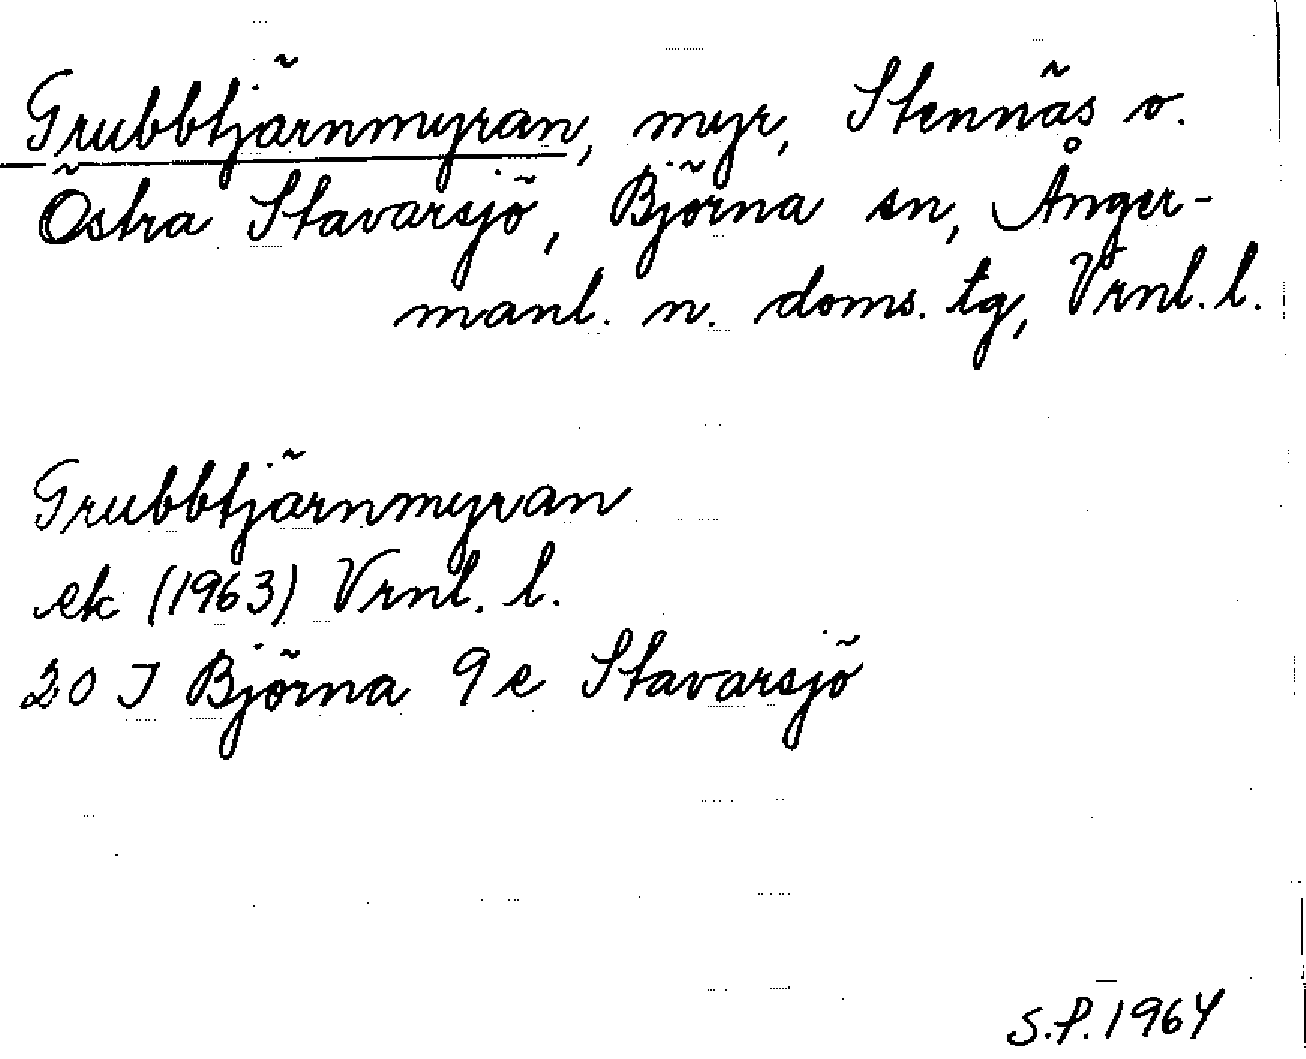 Grubbtjärnmyran, myr, Stennäs o.
Östra Stavarsjö, Björna sn, Ånger-
manl. n. doms. tg, Vrnl. l.
Grubbtjärnmyran
ek (1963) Vrnl. l.
20 J Björna 9 e Stavarsjö
S.P. 1964